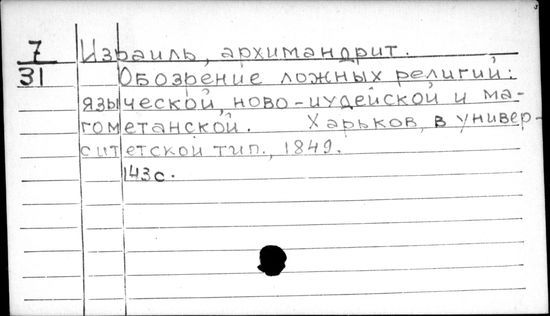 7 Израиль, архимандрит.
31 Обозрение ложных религий:
языческой, ново-иудейской и ма-
гометанской. Харьков, в универ-
ситетской тип., 1849.
143 с.